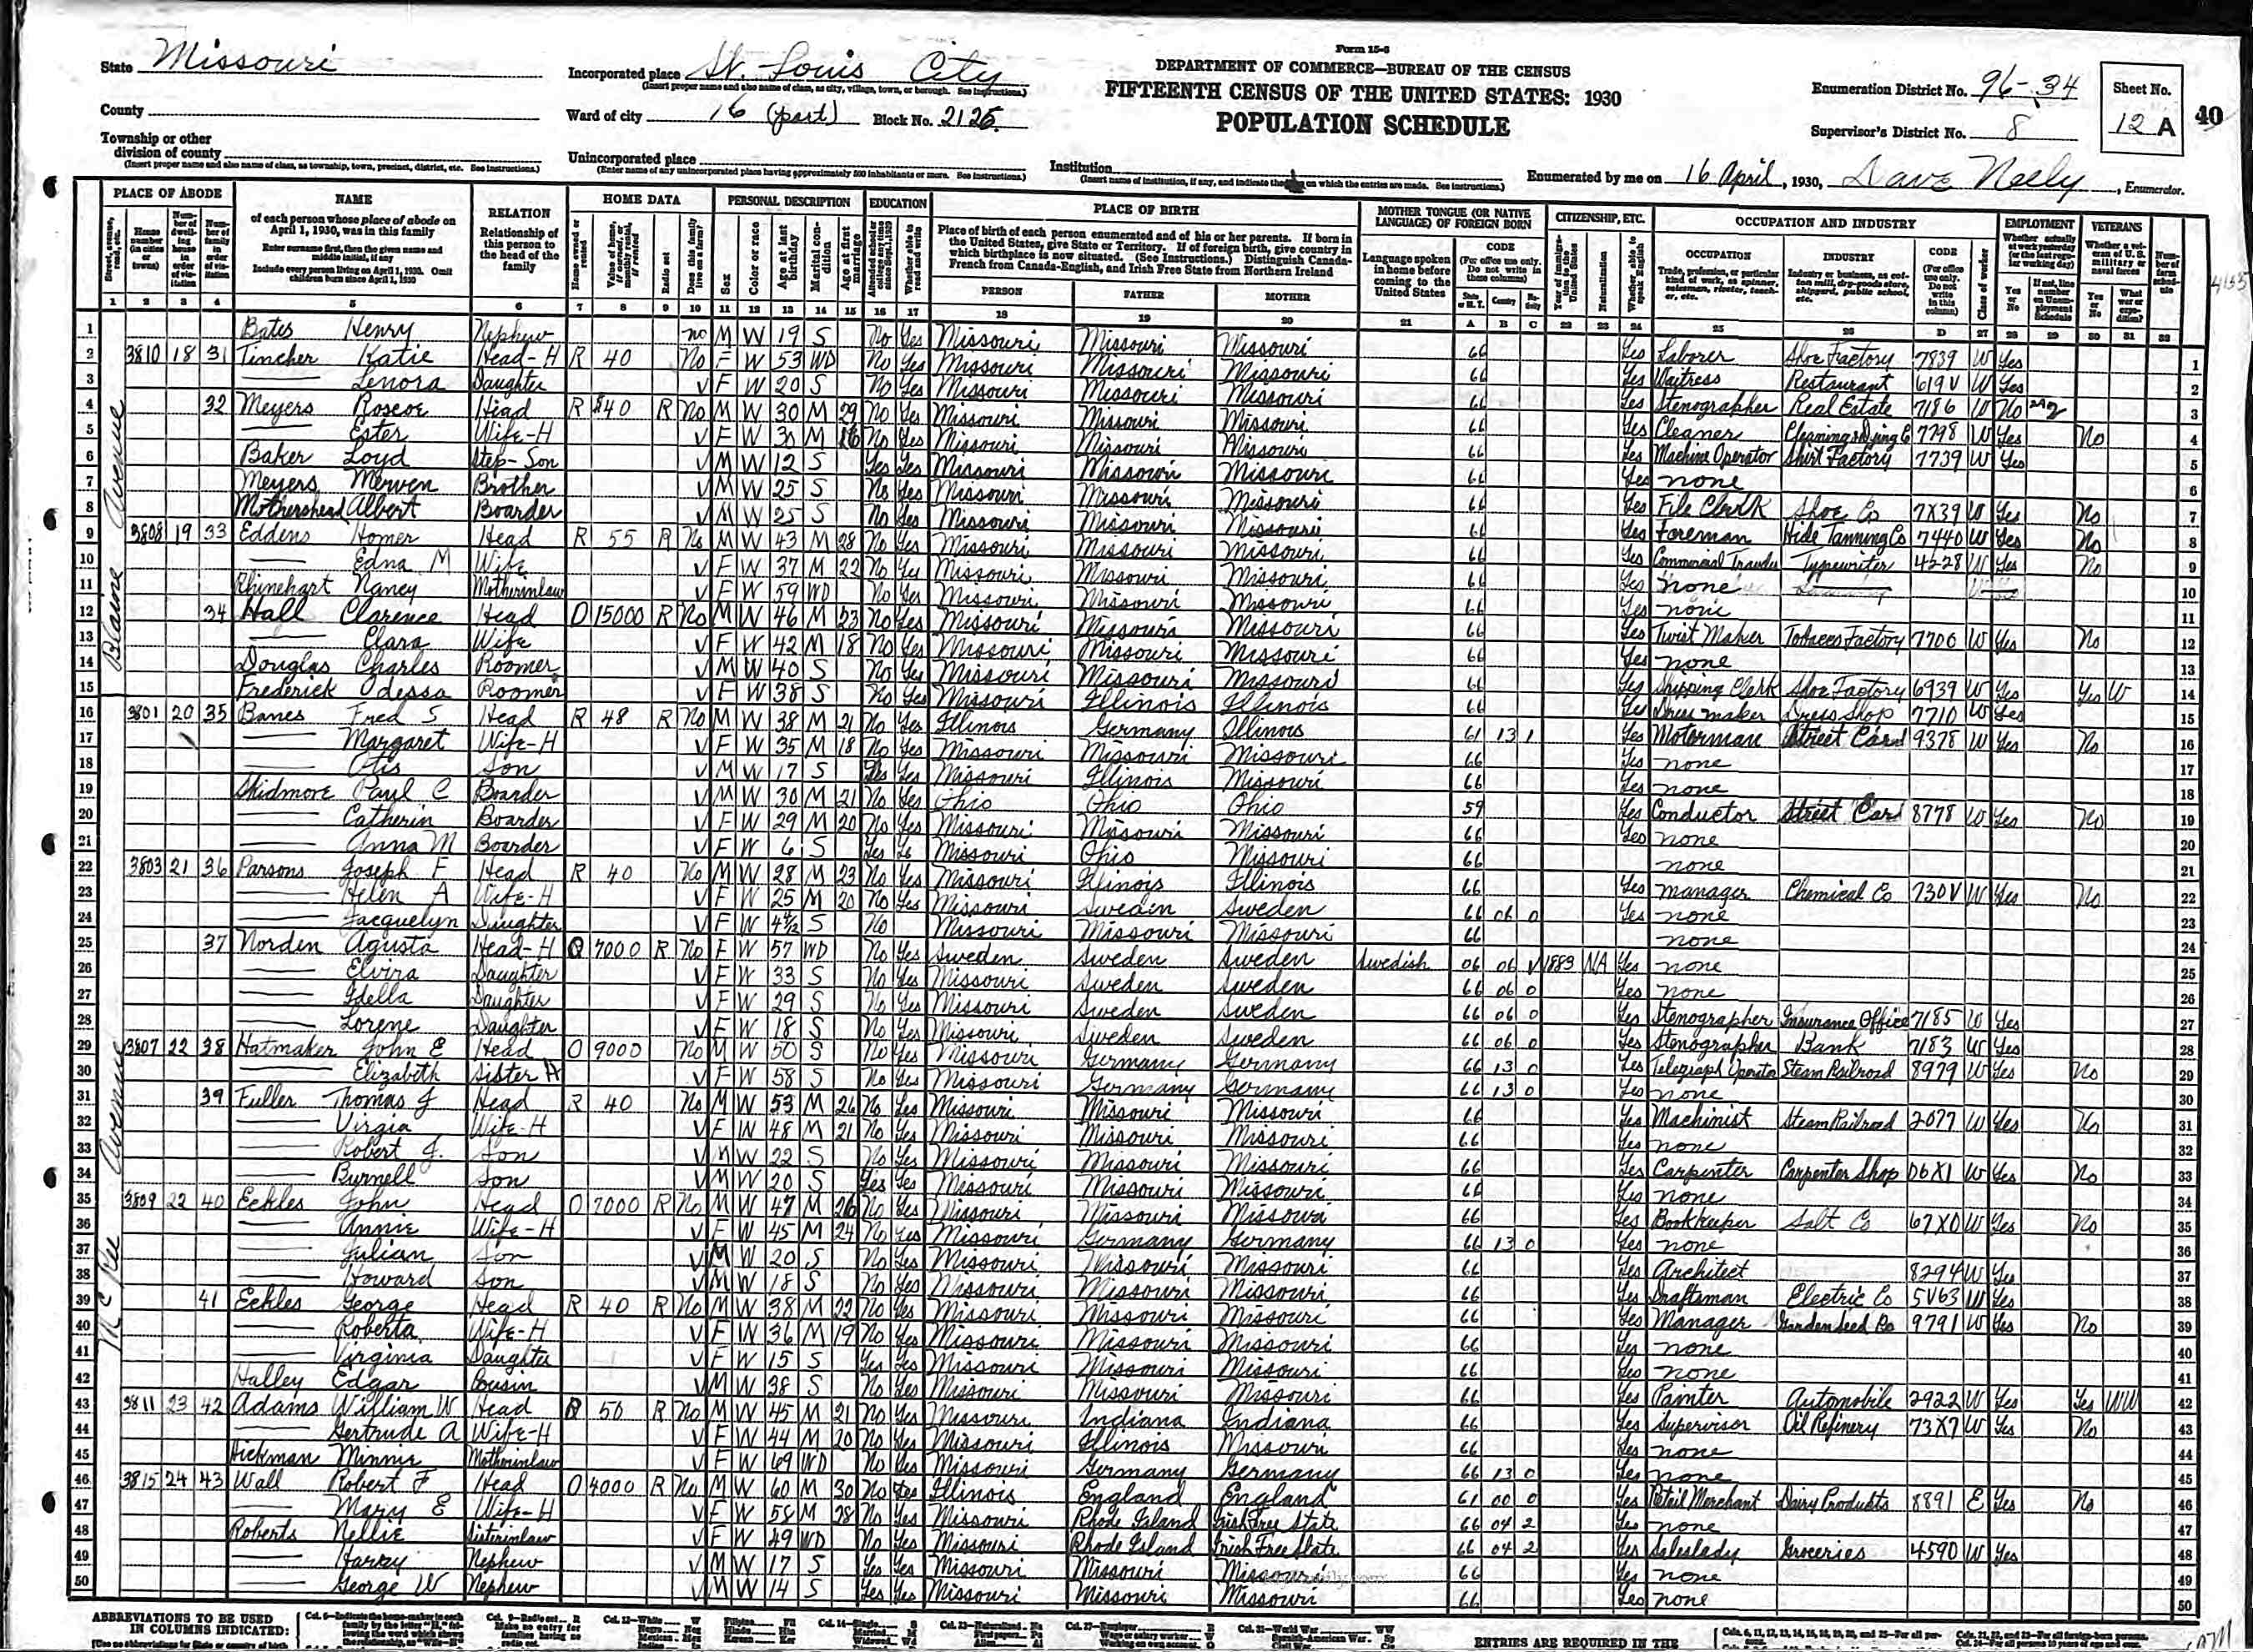 Form 15-6
State Missouri
Incorporated place St. Louis City
(Insert proper name and also name of class, as city, village, town, or borough. See instructions.)
DEPARTMENT OF COMMERCE—BUREAU OF THE CENSUS
FIFTEENTH CENSUS OF THE UNITED STATES: 1930
POPULATION SCHEDULE
Enumeration District No. 96-34
Sheet No.
12 A
40
County
Ward of city 16 (part) Block No. 2125
Supervisor's District No. 8
Township or other division of county
(Insert proper name and also name of class, as township, town, precinct, district, etc. See instructions.)
Unincorporated place
(Enter name of any unincorporated place having approximately 500 inhabitants or more. See instructions.)
Institution
Enumerated by me on 16 April, 1930, Dave Neely, Enumerator.
PLACE OF ABODE NAME RELATION HOME DATA PERSONAL DESCRIPTION EDUCATION PLACE OF BIRTH MOTHER TONGUE (OR NATIVE LANGUAGE) OF FOREIGN BORN CITIZENSHIP, ETC. OCCUPATION AND INDUSTRY EMPLOYMENT VETERANS
PERSON FATHER MOTHER
Blaine Avenue
1 Bates Henry Nephew no M W 19 S No Yes Missouri Missouri Missouri 66 Yes Laborer Shoe Factory 7839 W Yes
2 3810 18 31 Tincher Katie Head-H R 40 No F W 53 WD No Yes Missouri Missouri Missouri 66 Yes Waitress Restaurant 619V W Yes
3 Lenora Daughter V F W 20 S No Yes Missouri Missouri Missouri 66 Yes Stenographer Real Estate 7186 W No
4 32 Meyers Roscoe Head R $40 R No M W 30 M 29 No Yes Missouri Missouri Missouri 66 Yes Cleaner 7798 W Yes No
5 Ester Wife-H V F W 30 M 16 No Yes Missouri Missouri Missouri 66 Yes Machine Operator Shirt Factory 7739 W Yes
6 Baker Loyd Step-Son V M W 12 S Yes Yes Missouri Missouri Missouri 66 Yes none
7 Meyers Merven Brother V M W 25 S No Yes Missouri Missouri Missouri 66 Yes File Clerk Shoe Co 7X39 W Yes No
8 Mothershead Albert Boarder V M W 25 S No Yes Missouri Missouri Missouri 66 Yes Foreman Hide Tanning Co 7440 W Yes No
9 3808 19 33 Eddens Homer Head R 55 R No M W 43 M 28 No Yes Missouri Missouri Missouri 66 Yes Commercial Traveler Typewriter 4528 W Yes No
10 Edna M Wife V F W 37 M 22 No Yes Missouri Missouri Missouri 66 Yes none
11 Rhinehart Nancy Motherinlaw V F W 59 WD No Yes Missouri Missouri Missouri 66 Yes none
12 34 Hall Clarence Head O 15000 R No M W 46 M 23 No Yes Missouri Missouri Missouri 66 Yes Twist Maker Tobacco Factory 7706 W Yes No
13 Clara Wife V F W 42 M 18 No Yes Missouri Missouri Missouri 66 Yes none
14 Douglas Charles Roomer V M W 40 S No Yes Missouri Missouri Missouri 66 Yes Shipping Clerk Shoe Factory 6939 W Yes Yes W
15 Frederick Odessa Roomer V F W 38 S No Yes Missouri Illinois Illinois 66 Yes Dress maker Dress Shop 7710 W Yes
Mc Ree Avenue
16 3801 20 35 Banes Fred S Head R 48 R No M W 38 M 21 No Yes Illinois Germany Illinois 61 13 1 Yes Motorman Street Car 9378 W Yes No
17 Margaret Wife-H V F W 35 M 18 No Yes Missouri Missouri Missouri 66 Yes none
18 Otis Son V M W 17 S Yes Yes Missouri Illinois Missouri 66 Yes none
19 Skidmore Paul C Boarder V M W 30 M 21 No Yes Ohio Ohio Ohio 59 Yes Conductor Street Car 8778 W Yes No
20 Catherin Boarder V F W 29 M 20 No Yes Missouri Missouri Missouri 66 Yes none
21 Anna M Boarder V F W 6 S Yes Missouri Ohio Missouri 66 none
22 3803 21 36 Parsons Joseph F Head R 40 No M W 28 M 23 No Yes Missouri Illinois Illinois 66 Yes manager Chemical Co 730V W Yes No
23 Helen A Wife-H V F W 25 M 20 No Yes Missouri Sweden Sweden 66 06 0 Yes none
24 Jacquelyn Daughter V F W 4½ S No Missouri Missouri Missouri 66 none
25 37 Norden Agusta Head-H O 7000 R No F W 57 WD No Yes Sweden Sweden Sweden Swedish 06 06 V 1883 NA Yes none
26 Elvira Daughter V F W 33 S No Yes Missouri Sweden Sweden 66 06 0 Yes none
27 Idella Daughter V F W 29 S No Yes Missouri Sweden Sweden 66 06 0 Yes Stenographer Insurance Office 7185 W Yes
28 Lorene Daughter V F W 18 S No Yes Missouri Sweden Sweden 66 06 0 Yes Stenographer Bank 7183 W Yes
29 3807 22 38 Hatmaker John E Head O 9000 No M W 50 S No Yes Missouri Germany Germany 66 13 0 Yes Telegraph Operator Steam Railroad 8979 W Yes No
30 Elizabeth Sister H V F W 58 S No Yes Missouri Germany Germany 66 13 0 Yes none
31 39 Fuller Thomas J Head R 40 No M W 53 M 26 No Yes Missouri Missouri Missouri 66 Yes Machinist Steam Railroad 2077 W Yes No
32 Virgia Wife-H V F W 48 M 21 No Yes Missouri Missouri Missouri 66 Yes none
33 Robert J. Son V M W 22 S No Yes Missouri Missouri Missouri 66 Yes Carpenter Carpenter Shop 06X1 W Yes No
34 Burnell Son V M W 20 S Yes Yes Missouri Missouri Missouri 66 Yes none
35 3809 22 40 Eckles John Head O 7000 R No M W 47 M 26 No Yes Missouri Missouri Missouri 66 Yes Bookkeeper Salt Co 67X0 W Yes No
36 Annie Wife-H V F W 45 M 24 No Yes Missouri Germany Germany 66 13 0 Yes none
37 Julian Son V M W 20 S No Yes Missouri Missouri Missouri 66 Yes Architect 8294 W Yes
38 Howard Son V M W 18 S No Yes Missouri Missouri Missouri 66 Yes Draftsman Electric Co 5V63 W Yes
39 41 Eckles George Head R 40 R No M W 38 M 22 No Yes Missouri Missouri Missouri 66 Yes Manager Garden Seed Co 9791 W Yes No
40 Roberta Wife-H V F W 36 M 19 No Yes Missouri Missouri Missouri 66 Yes none
41 Virginia Daughter V F W 15 S Yes Yes Missouri Missouri Missouri 66 Yes none
42 Halley Edgar Cousin V M W 38 S No Yes Missouri Missouri Missouri 66 Yes Painter Automobile 2922 W Yes Yes WW
43 3811 23 42 Adams William W Head R 50 R No M W 45 M 21 No Yes Missouri Indiana Indiana 66 Yes Supervisor Oil Refinery 73X7 W Yes No
44 Gertrude A Wife-H V F W 44 M 20 No Yes Missouri Illinois Missouri 66 Yes none
45 Hickman Minnie Motherinlaw V F W 69 WD No Yes Missouri Germany Germany 66 13 0 Yes none
46 3815 24 43 Wall Robert F Head O 4000 R No M W 60 M 30 No Yes Illinois England England 61 00 0 Yes Retail Merchant Dairy Products 8891 E Yes No
47 Mary E Wife-H V F W 58 M 28 No Yes Missouri Rhode Island Irish Free State 66 04 2 Yes none
48 Roberts Nellie Sisterinlaw V F W 49 WD No Yes Missouri Rhode Island Irish Free State 66 04 2 Yes Saleslady Groceries 4590 W Yes
49 Harry Nephew V M W 17 S Yes Yes Missouri Missouri Missouri 66 Yes none
50 George W Nephew V M W 14 S Yes Yes Missouri Missouri Missouri 66 Yes none
ABBREVIATIONS TO BE USED IN COLUMNS INDICATED:
ENTRIES ARE REQUIRED IN THE